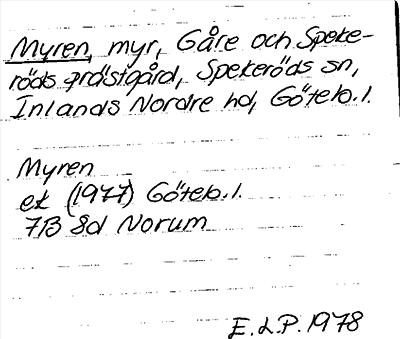 Myren, myr, Gåre och Speke-
röds prästgård, Spekeröds sn,
Inlands Nordre hd, Göteb. l.
Myren
ek (1977) Göteb. l.
7B 8d Norum
E.L.P. 1978